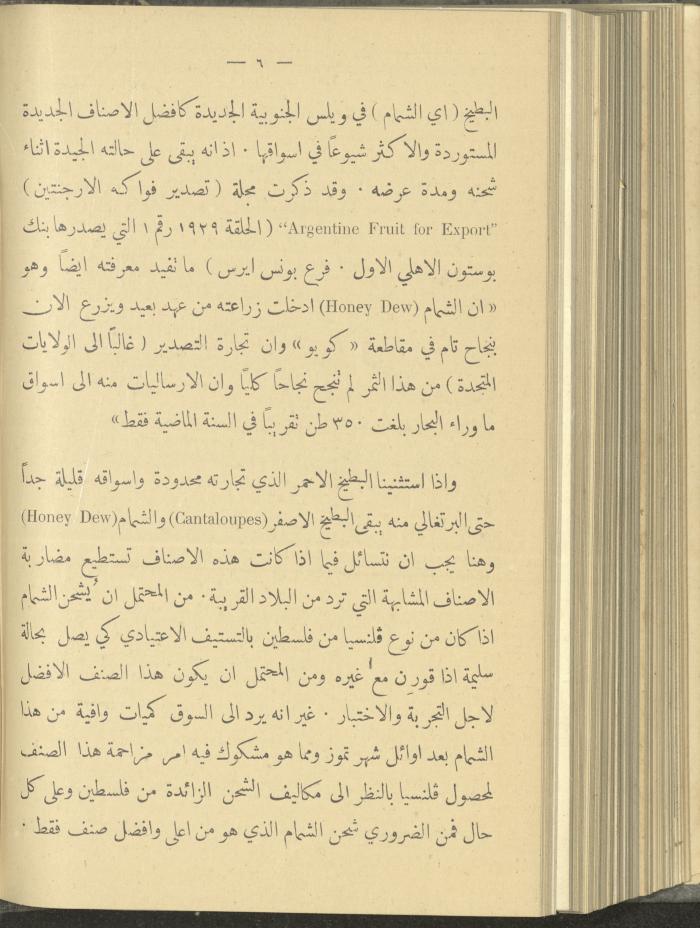 — ٦ —
البطيخ ( اي الشمام ) في ويلس الجنوبية الجديدة كافضل الاصناف الجديدة
المستوردة والاكثر شيوعاً في اسواقها · اذ انه يبقى على حالته الجيدة اثناء
شحنه ومدة عرضه · وقد ذكرت مجلة ( تصدير فواكه الارجنتين )
“Argentine Fruit for Export” ( الحلقة ١٩٢٩ رقم ١ التي يصدرها بنك
بوستون الاهلي الاول · فرع بونس ايرس ) ما تفيد معرفته ايضاً وهو
« ان الشمام (Honey Dew) ادخلت زراعته من عهد بعيد ويزرع الان
بنجاح تام في مقاطعة « كويو » وان تجارة التصدير ( غالباً الى الولايات
المتحدة ) من هذا الثمر لم تنجح نجاحاً كلياً وان الارساليات منه الى اسواق
ما وراء البحار بلغت ٣٥٠ طن تقريباً في السنة الماضية فقط »
واذا استثنينا البطيخ الاحمر الذي تجارته محدودة واسواقه قليلة جداً
حتى البرتغالي منه يبقى البطيخ الاصفر (Cantaloupes) والشمام (Honey Dew)
وهنا يجب ان نتسائل فيما اذا كانت هذه الاصناف تستطيع مضاربة
الاصناف المشابهة التي ترد من البلاد القريبة · من المحتمل ان يُشحن الشمام
اذا كان من نوع ڤلنسيا من فلسطين بالتستيف الاعتيادي كي يصل بحالة
سليمة اذا قورن مع غيره ومن المحتمل ان يكون هذا الصنف الافضل
لاجل التجربة والاختبار · غير انه يرد الى السوق كميات وافية من هذا
الشمام بعد اوائل شهر تموز ومما هو مشكوك فيه امر مزاحمة هذا الصنف
لمحصول ڤلنسيا بالنظر الى مكاليف الشحن الزائدة من فلسطين وعلى كل
حال فمن الضروري شحن الشمام الذي هو من اعلى وافضل صنف فقط ·